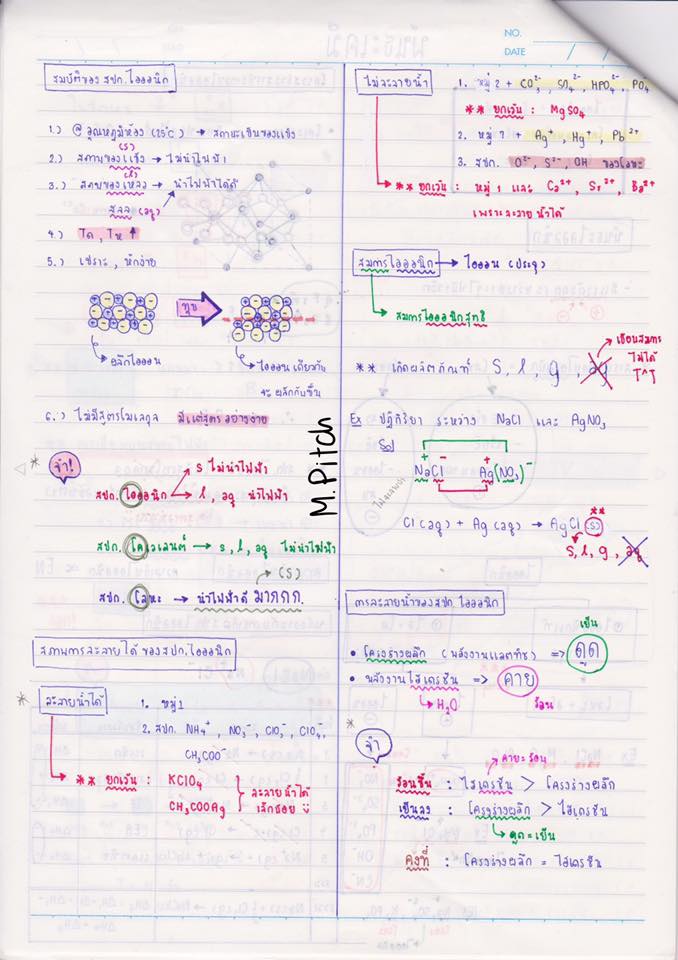 NO.
DATE
สมบัติของ สปก. ไอออนิก
1.) @ อุณหภูมิห้อง (25°C) → สถานะเป็นของแข็ง
(s)
2.) สถานะของแข็ง → ไม่นำไฟฟ้า
(l)
3.) สถานะของเหลว → นำไฟฟ้าได้ดี
สลล (aq)
4.) Tด , Tห ↑
5.) เปราะ , หักง่าย
ทุบ
ผลึกไอออน
ไอออนเดียวกัน
จะ ผลักกันขึ้น
6.) ไม่มีสูตรโมเลกุล มีแต่สูตรอย่างง่าย
* จำ!
สปก. ไอออนิก → s ไม่นำไฟฟ้า
→ l, aq นำไฟฟ้า
สปก. โคเวเลนต์ → s, l, aq ไม่นำไฟฟ้า
(s)
สปก. โลหะ → นำไฟฟ้าดี มากกก.
สภาพการละลายได้ ของสปก. ไอออนิก
ละลายน้ำได้
1. หมู่ 1
2. สปก. NH₄⁺ , NO₃⁻, ClO₃⁻, ClO₄⁻,
CH₃COO⁻
** ยกเว้น : KClO₄
CH₃COOAg
ละลายน้ำได้
เล็กน้อย
ไม่ละลายน้ำ
1. หมู่ 2 + CO₃²⁻, SO₄²⁻, HPO₄²⁻, PO₄
** ยกเว้น : MgSO₄
2. หมู่ 7 + Ag⁺, Hg⁺, Pb²⁺
3. สปก. O²⁻, S²⁻, OH⁻ ของโลหะ
** ยกเว้น : หมู่ 1 และ Ca²⁺, Sr²⁺, Ba²⁺
เพราะละลายน้ำได้
สมการไอออนิก → ไอออน (ประจุ)
สมการไอออนิกสุทธิ
** เกิดผลิตภัณฑ์ s, l, g, aq
เขียนสมการ
ไม่ได้
T^T
Ex ปฏิกิริยา ระหว่าง NaCl และ AgNO₃
Sol
+ - +
NaCl Ag(NO₃)⁻
**
Cl(aq) + Ag(aq) → AgCl(s)
s, l, g, aq
M.Pitch
การละลายน้ำของสปก. ไอออนิก
เย็น
• โครงร่างผลึก (พลังงานแลตทิซ) => ดูด
• พลังงานไฮเดรชัน => คาย
H₂O
ร้อน
* จำ
คาย=ร้อน
ร้อนขึ้น : ไฮเดรชัน > โครงร่างผลึก
เย็นลง : โครงร่างผลึก > ไฮเดรชัน
ดูด=เย็น
คงที่ : โครงร่างผลึก = ไฮเดรชัน